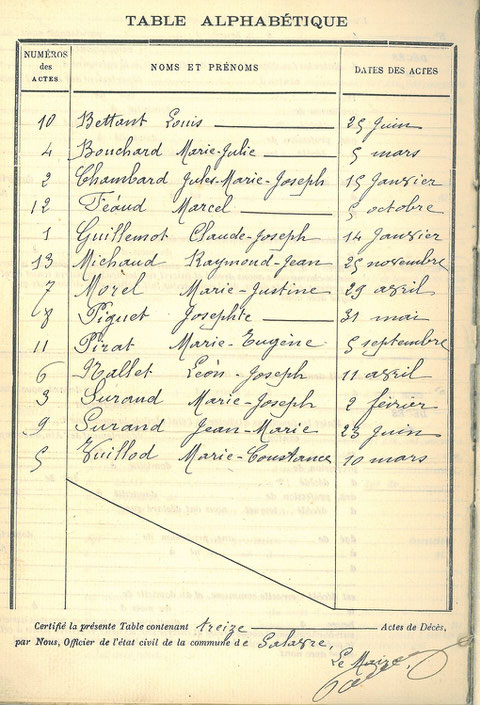 TABLE ALPHABÉTIQUE
NUMÉROS des ACTES NOMS ET PRÉNOMS DATES DES ACTES
10 Bettant Louis 25 Juin
4 Bouchard Marie-Julie 5 mars
2 Chambard Jules-Marie-Joseph 15 Janvier
12 Féaud Marcel 5 octobre
1 Guillemot Claude-Joseph 14 Janvier
13 Michaud Raymond-Jean 25 novembre
7 Morel Marie-Justine 29 avril
8 Piguet Josephte 31 mai
11 Pirat Marie-Eugène 5 septembre
6 Rallet Léon-Joseph 11 avril
3 Surand Marie-Joseph 2 février
9 Surand Jean-Marie 23 Juin
5 Vuillod Marie-Constance 10 mars
Certifié la présente Table contenant treize Actes de Décès,
par Nous, Officier de l'état civil de la commune de Salavre.
Le Maire,